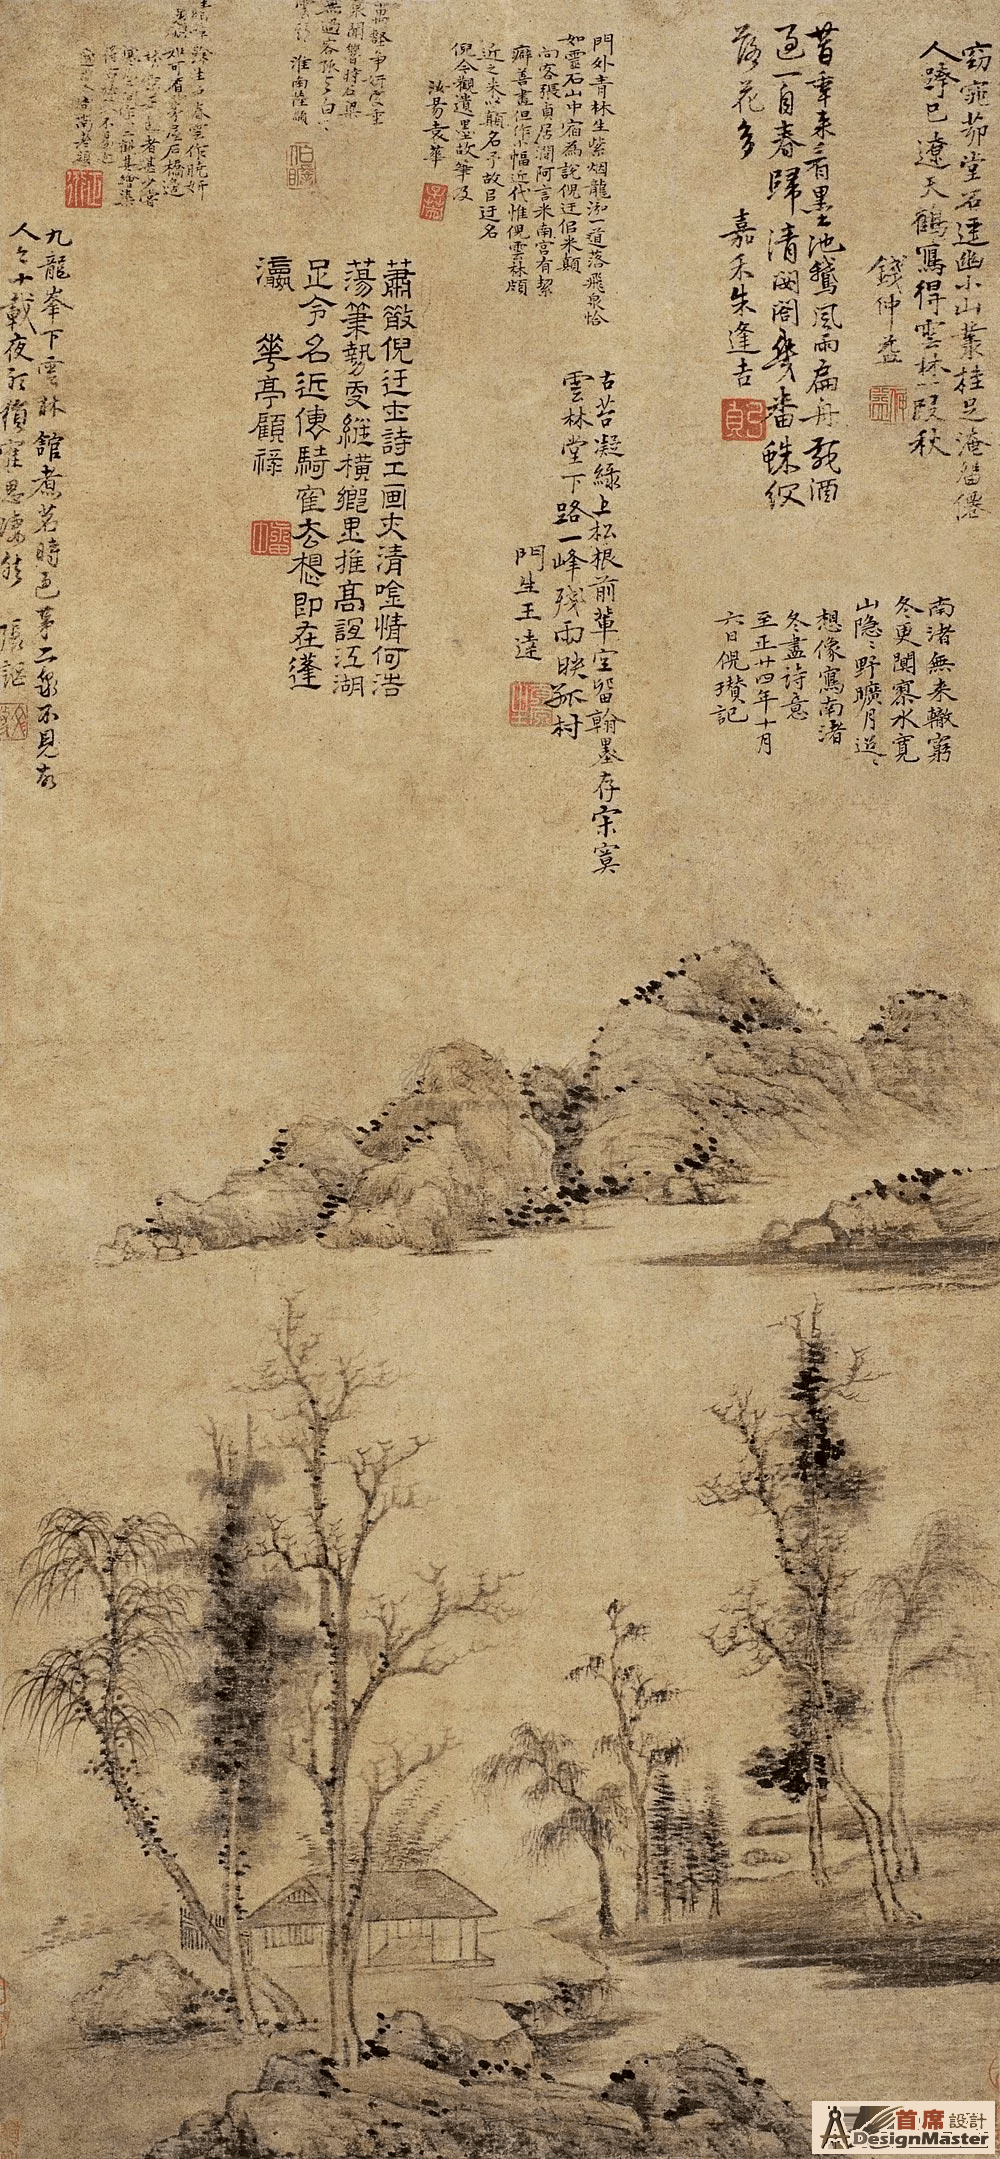 窈窕茆堂石逕幽小山叢桂足淹留僊
人跨已遼天鶴寫得雲林一段秋
錢仲益
昔年來看墨池鵝風雨扁舟載酒
過一自春歸清閟閣幾番蛛網
落花多
嘉禾朱逢吉
門外青林生紫烟龍泓一道落飛泉恰
如靈石山中宿為說倪迂佀米顛
向客張貞居澗阿言米南宮有絜
癖善畫但作小幅近代惟倪雲林頗
近之米以顛名予故目迂名
倪今觀遺墨故筆及
汝昜袁華
南渚無来轍窮
冬更闃寥水寬
山隐隐野曠月迢迢
想像寫南渚
冬盡詩意
至正廿四年十月
六日倪瓚記
古苔凝綠上松根前輩空留翰墨存寂寞
雲林堂下路一峰殘雨映孤村
門生王達
蕭散倪迂士詩工画夾清唫情何浩
蕩筆勢更縱橫鄉里推高誼江湖
足令名近傳騎寉去想即在蓬
瀛
華亭顧祿
淮南陸顒
九龍峯下雲林館煮茗時過第二泉不見故
人今十載夜
首席設計
DesignMaster